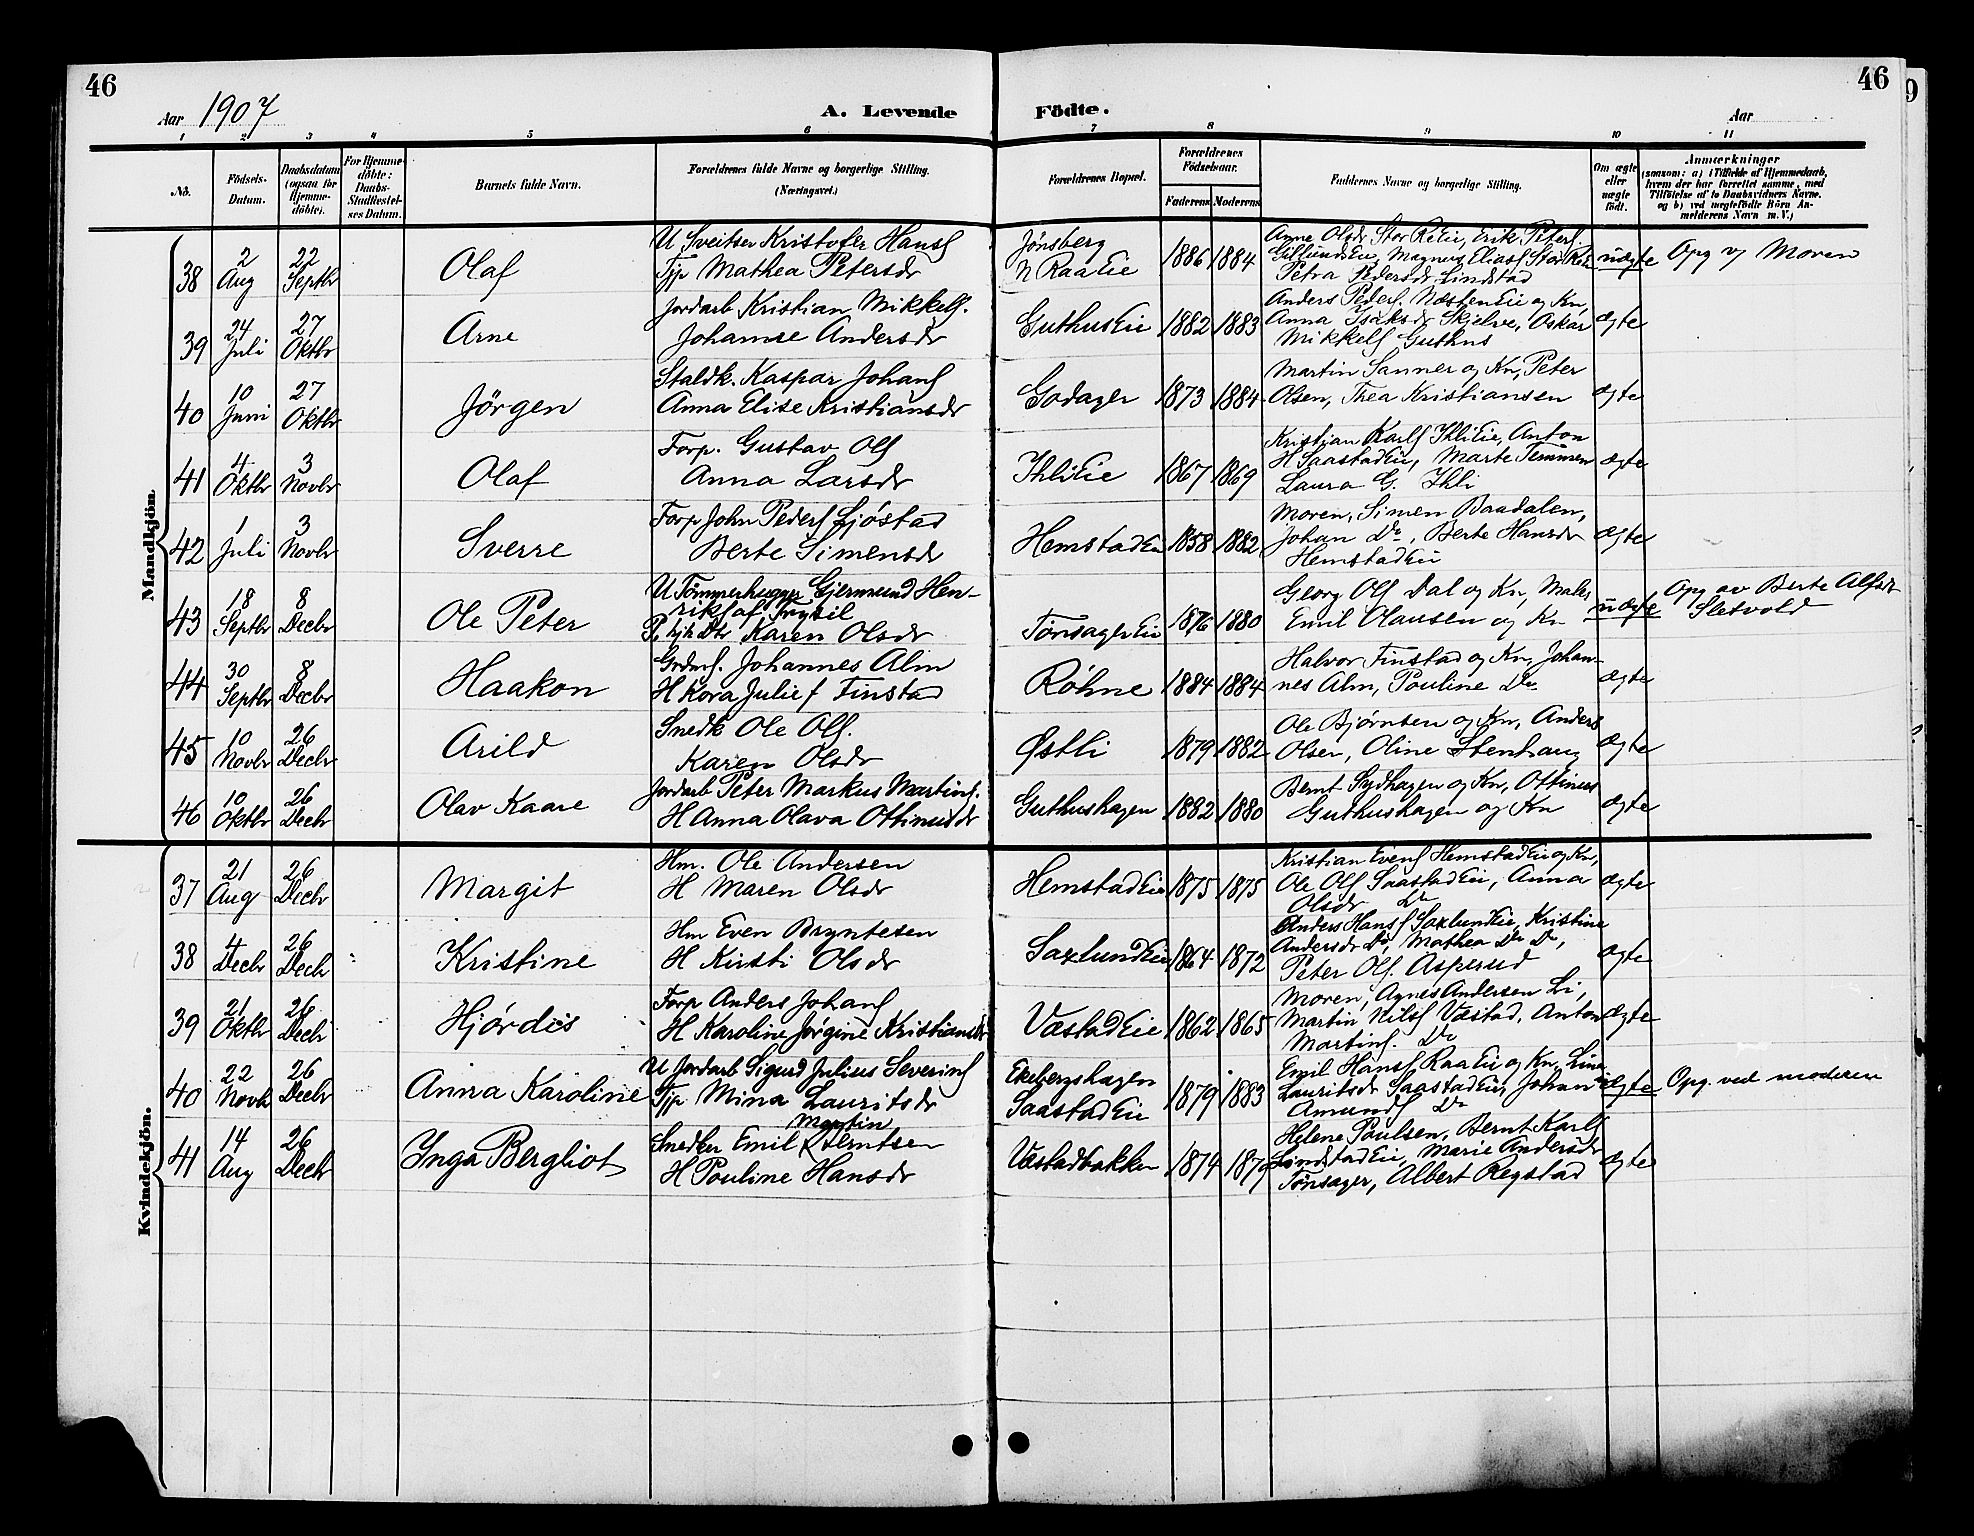 46
46
9
Aar 1907
A. Levende Födte.
Aar
1 2 3 4 5 6 7 8 9 10 11
No.
Födsels-Datum.
Daabsdatum (ogsaa for Hjemme-döbte).
For Hjemme-döbte: Daabs-Stadfæstel-ses Datum.
Barnets fulde Navn.
Forældrenes fulde Navne og borgerlige Stilling. (Næringsvei.)
Forældrenes Bopæl.
Forældrenes Födselsaar.
Faderens Moderens
Faddernes Navne og borgerlige Stilling.
Om ægte eller uægte födt.
Anmærkninger
(saasom: a) i Tilfælde af Hjemmedaab, hvem der har forrettet samme, med Tilföielse af to Daabsvidners Navne. og b) ved uægtefödte Börn An-melderens Navn m. V.)
Mandkjön.
38 2 Aug 22 Septbr Olaf
U Sveitser Kristofer Hans
Tjp Mathea Petersdr
Jønsberg
N Raa Eie
1886 1884
Anne Olsdr Stor Re Eie, Erik Peters.
Gillund Eie, Magnus Elias Stor Re Eie
Petra Pedersdr Lindstad
uægte Opg v/ Moren
39 24 Juli 27 Oktbr Arne
Jordarb Kristian Mikkels.
Johanne Andersdr
Guthus Eie 1882 1883
Anders Peders. Næsten Eie og Kn,
Anna Isaksdr Skjelve, Oskar
Mikkels Guthus
ægte
40 10 Juni 27 Oktbr Jørgen
Staldk. Kaspar Johans
Anna Elise Kristiansdr
Godager 1873 1884
Martin Sanner og Kn, Peter
Olsen, Thea Kristiansen
ægte
41 4 Oktbr 3 Novbr Olaf
Forp. Gustav Ols
Anna Larsdr
Ihli Eie 1867 1869
Kristian Karls Ihli Eie, Anton
H Saastad Eie, Marte Temmen
Laura G. Ihli
ægte
42 1 Juli 3 Novbr Sverre
Forp John Peders Sjøstad
Berte Simensdr
Hemstad Eie 1858 1882
Moren, Simen Baadalen,
Johan Do, Berte Hansdr
Hemstad Eie
ægte
43 18 Septbr 8 Decbr Ole Peter
U Tømmerhugger Gjermund Hen-
riks af Trysil
P. hjh Dtr Karen Olsdr
Tønsager Eie 1876 1880
Georg Ols Dal og Kn, Maler
Emil Olausen og Kn
uægte
Opg av Berte Alfsdr
Sletvold
44 30 Septbr 8 Decbr Haakon
Grdmf. Johannes Alm
H Kora Julie f Finstad
Røhne 1884 1884
Halvor Finstad og Kn, Johan-
nes Alm, Pouline Do
ægte
45 10 Novbr 26 Decbr Arild
Snedk Ole Ols.
Karen Olsdr
Østli 1879 1882
Ole Bjørnsen og Kn, Anders
Olsen, Oline Stenhaug
ægte
46 10 Oktbr 26 Decbr Olav Kaare
Jordarb Peter Markus Martins.
H Anna Olava Ottinusdr
Guthushagen 1882 1880
Bernt Sydhagen og Kn, Ottinus
Guthushagen og Kn
ægte
Kvindekjön.
37 21 Aug 26 Decbr Margit
Hm. Ole Andersen
H Maren Olsdr
Hemstad Eie 1875 1875
Kristian Evens Hemstad Eie og Kn,
Ole Ols Saastad Eie, Anna
Olsdr Do
ægte
38 4 Decbr 26 Decbr Kristine
Hm Even Bryntesen
H Kirsti Olsdr
Saxlund Eie 1864 1872
Anders Hans Saxlund Eie, Kristine
Andersdr Do, Mathea Do Do,
Peter Ols. Asperud
ægte
39 21 Oktbr 26 Decbr Hjørdis
Forp Anders Johans
H Karoline Jørgine Kristiansdr
Væstad Eie 1862 1865
Moren, Agnes Andersen Li,
Martin Nils Væstad, Anton
Martins. Do
ægte
40 22 Novb 26 Decbr Anna Karoline
U Jordarb Sigurd Julius Severins
Tjp. Mina Lauritsdr
Ekebergshagen
Saastad Eie
1879 1883
Emil Hans Raa Eie og Kn, Lina
Lauritsdr Saastad Eie, Johan
Amunds Do
uægte Opg. ved moderen
41 14 Aug 26 Decbr Inga Bergliot
Martin
Snedker Emil Berntsen
H Pouline Hansdr
Væstadbakken 1874 1879
Helene Paulsen, Bernt Karls
Lindstad Eie, Marie Andersdr
Tønsager, Albert Regstad
ægte